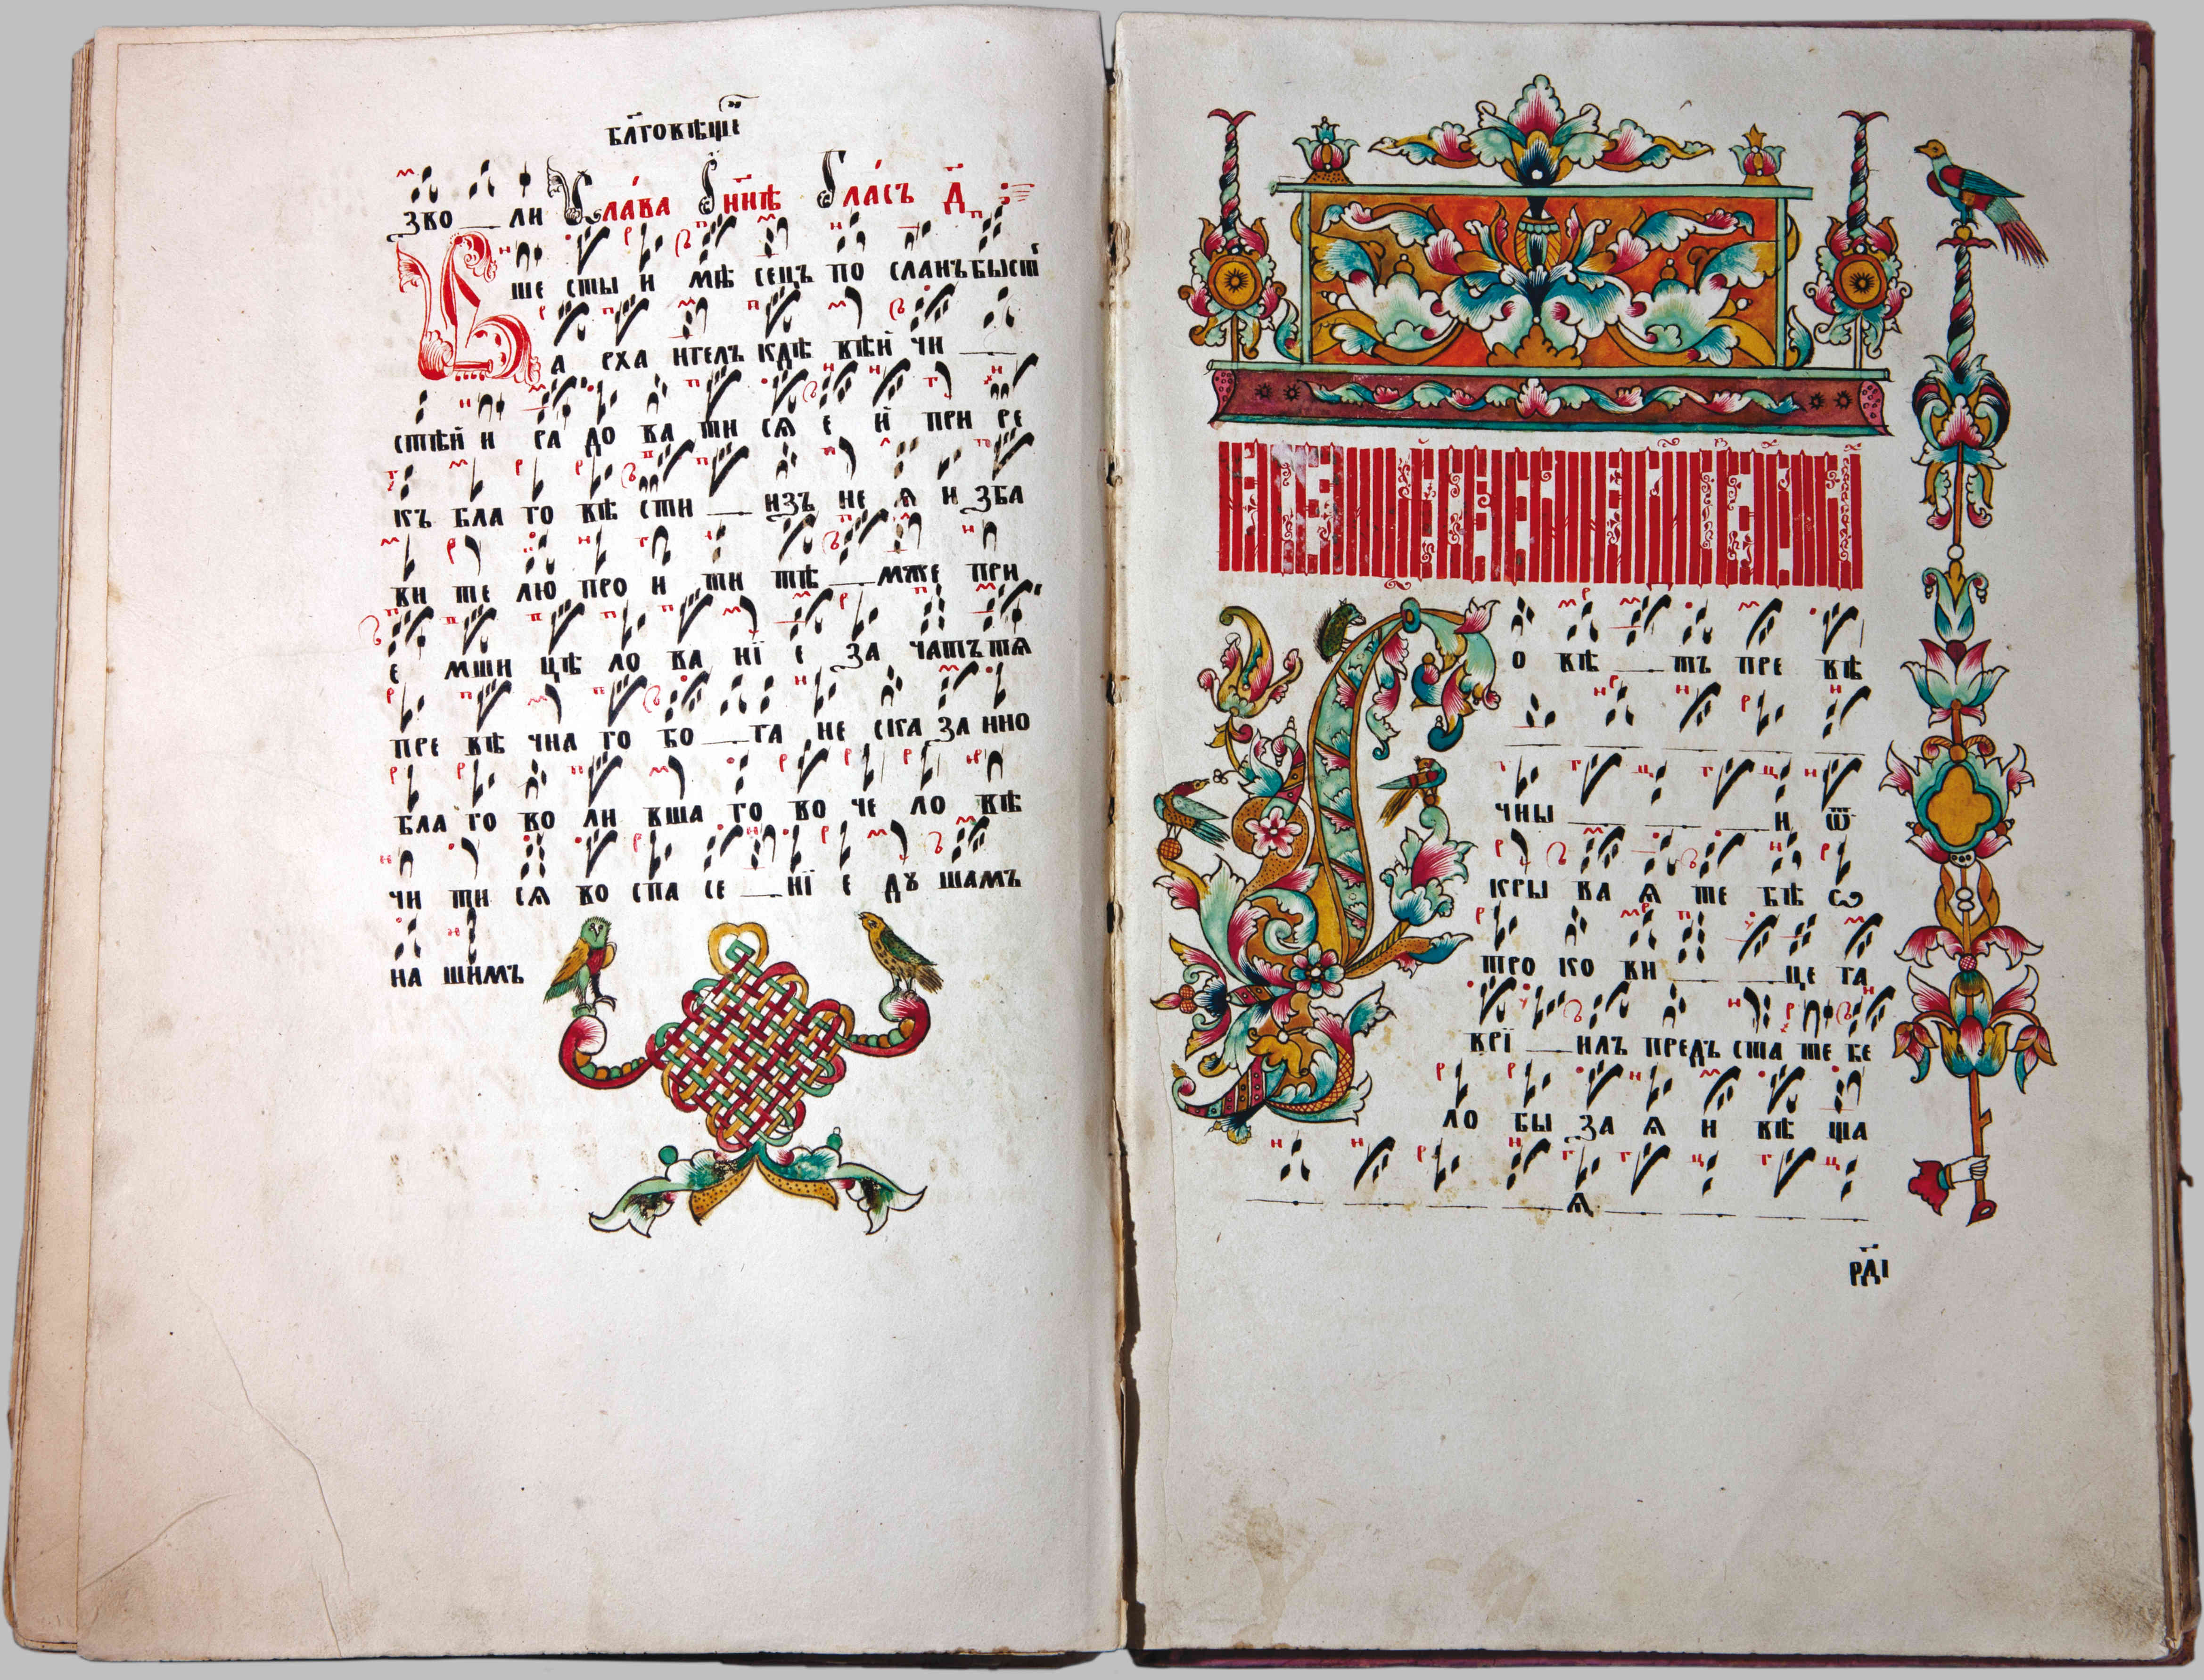 бл҃говѣще
зво ли Слава и нн҃ѣ Гласъ д҃
Въ ше сты и мѣ сецъ по сланъ бысть
а рха нгелъ кдѣ вѣй чи
стѣй и ра до ва ти ся е й при ре
къ бла го вѣ сти изъ не я и зба
ви те лю про и ти тѣ мже при
е мши цѣ ло ва нї е за чатъ тя
пре вѣ чна го бо га не ска за нно
бла го во ли вша го во че ло вѣ
чи ти ся во спа се нї е ду шамъ
на шимъ
Со вѣ тъ пре вѣ
чны и ѿ
кры ва я те бѣ ѡ
тро ко ви це га
врї илъ предъ ста те бе
ло бы за я и вѣ ща
я
рд҃і